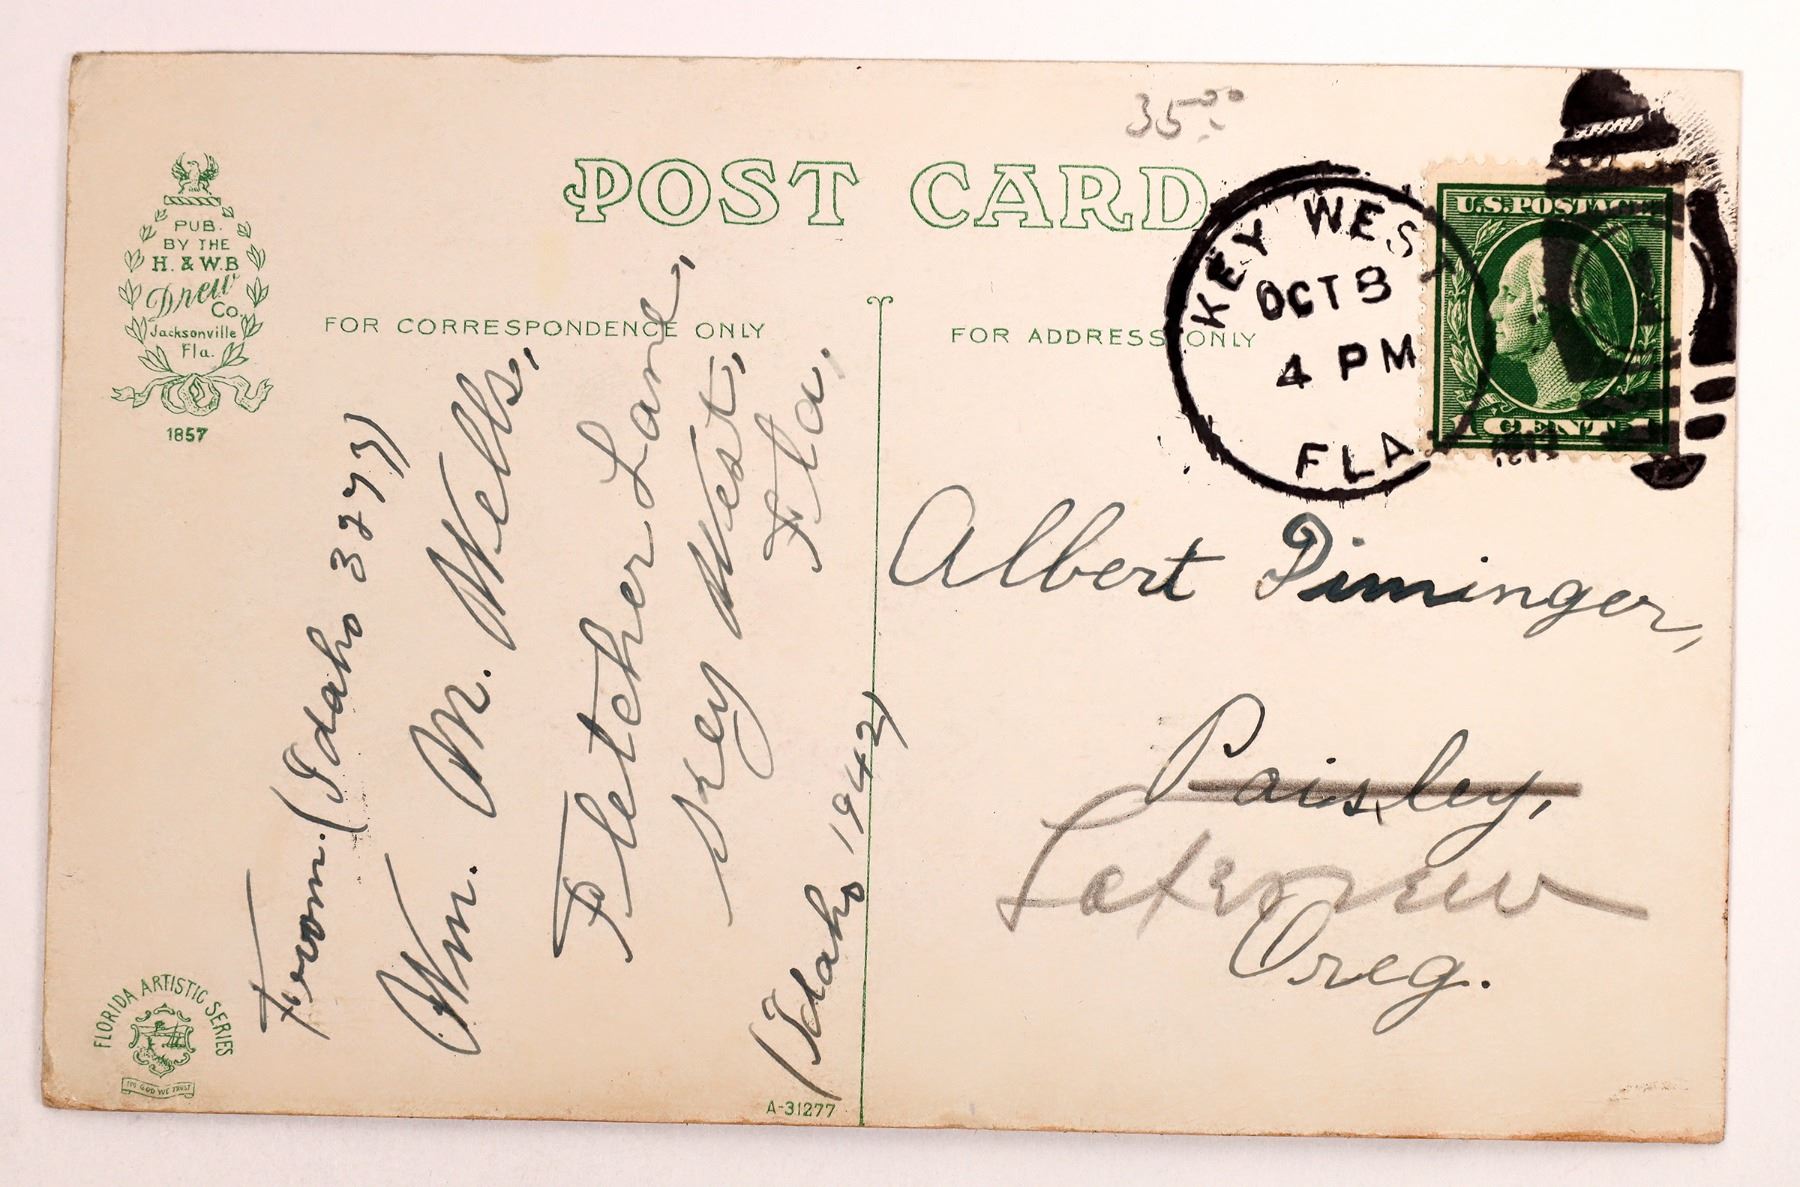 35.00
POST CARD
PUB.
BY THE
H. & W.B
Drew
Co.
Jacksonville
Fla.
1857
FOR CORRESPONDENCE ONLY
FOR ADDRESS ONLY
KEY WEST
OCT 8
4 PM
FLA
U.S. POSTAGE
1 CENT 1
From. (Idaho 3273)
Wm. M. Wells,
Fletcher Lane,
Key West,
Fla.
(Idaho 1942)
Albert Diminger,
Paisley,
Oreg.
FLORIDA ARTISTIC SERIES
IN GOD WE TRUST
A-31277